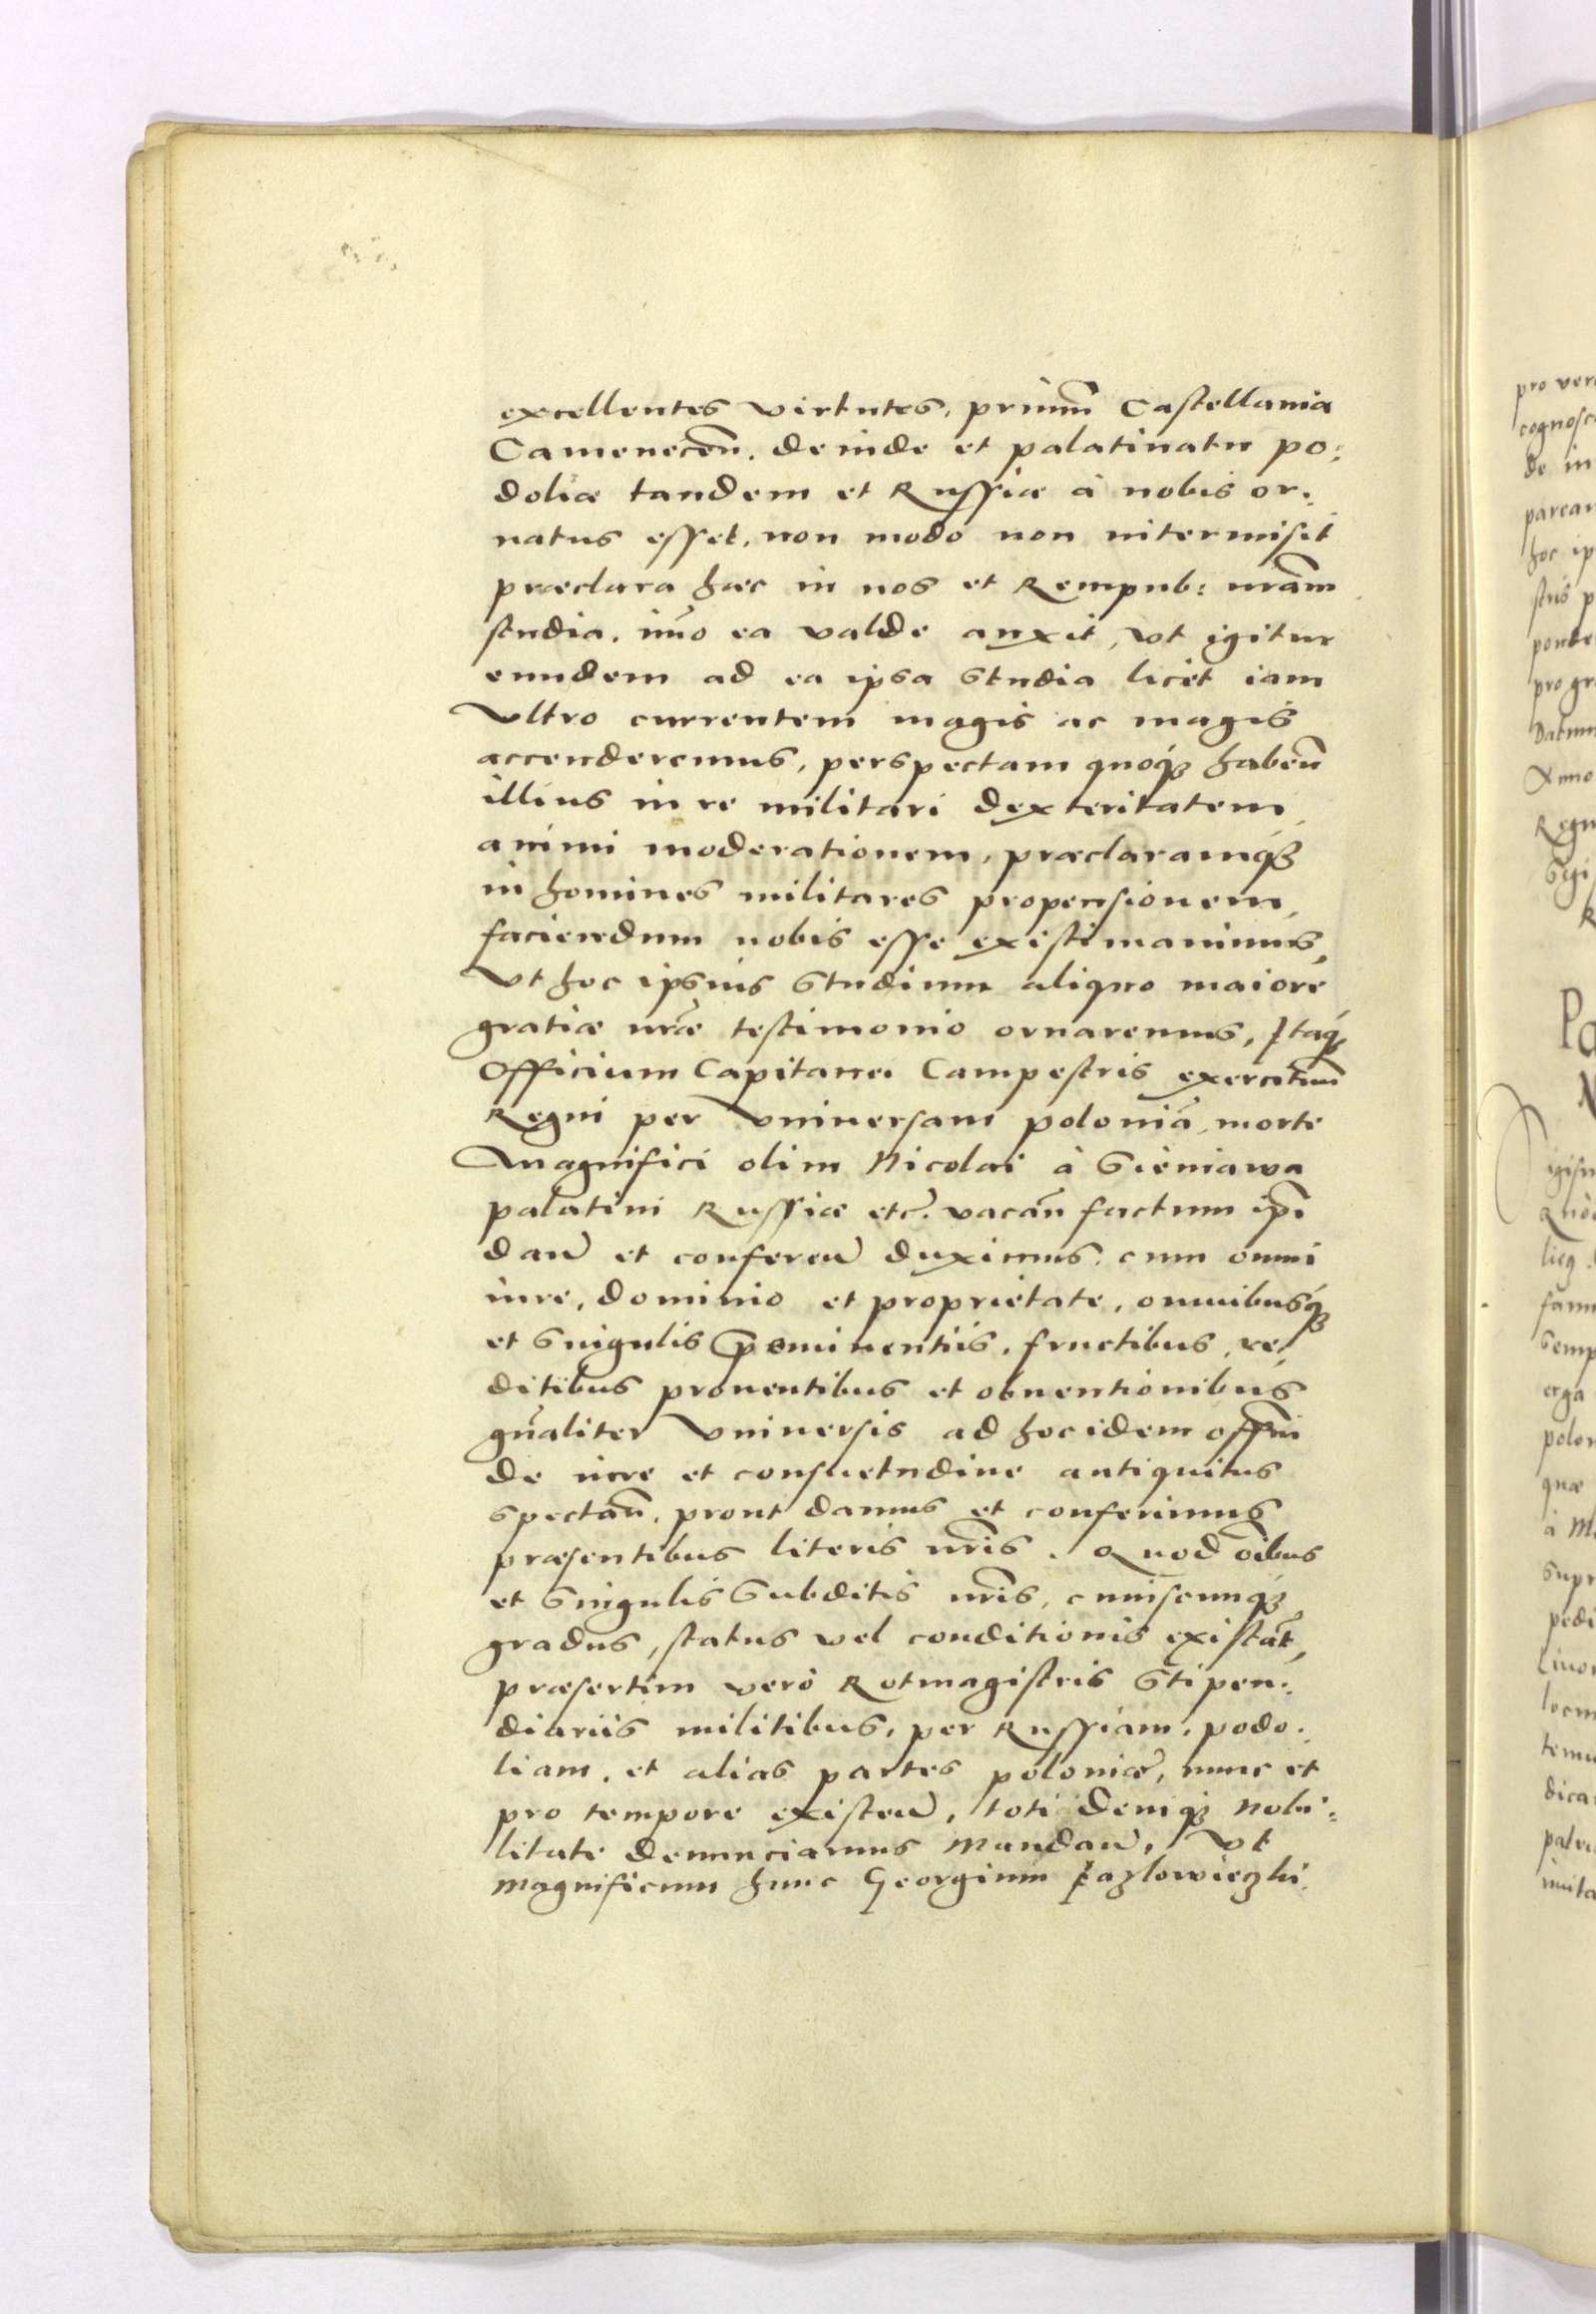 excellentes virtutes, primũ Castellania
Camenecen̄. deinde et palatinatu po:
doliæ tandem et Russiæ à nobis or:
natus esset, non modo non intermisit
præclara hæc in nos et Rempub: nrãm
studia, im̃o ea valde auxit, vt igitur
eundem ad ea ipsa studia licet iam
vltro currentem magis ac magis
accenderemus, perspectam quoq́ʒ haben̄
illius in re militari dexteritatem,
animi moderationem, præclaramq́ʒ
in homines militares propensionem,
faciendum nobis esse existimauimus,
vt hoc ipsius studium aliquo maiore
gratiæ nrãe testimonio ornaremus, Itaq́ʒ
Officium Capitanei Campestris exercituũ
Regni per vniuersam poloniã, morte
Magnifici olim Nicolai à Sieniawa
palatini Russiæ etc̃. vacãn factum ipĩ
dan̄ et conferen̄ duximus, cum omni
iure, dominio et proprietate, omnibusq́ʒ
et singulis p̄eminentiis, fructibus, re:
ditibus prouentibus et obuentionibus
gn̄aliter vniuersis ad hoc idem offm̄
de iure et consuetudine antiquitus
spectan̄, prout damus et conferimus
præsentibus literis nrĩs. Quod oĩbus
et singulis subditis nrĩs, cuiuscunq́ʒ
gradus, status vel conditionis existãt,
præsertim verò Rotmagistris stipen:
diariis militibus, per Russiam, podo:
liam, et alias partes poloniæ, nunc et
pro tempore existen̄, toti deniq́ʒ nobi:
litati denunciamus Mandan̄, vt
magnificum hunc Georgium Jazlowieczki
pro ver
cognosc
de in
parear
hoc ip
stris p
ponde
pro gr
Datum
Anno
Regn
Sigi
R
Pa
N
igism
Quod
lieg
fam
semp
erga
polon
quæ
à M
supr
pedi
Liuo
locu
temu
dica
palu
inita